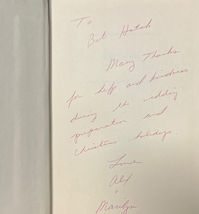 To
Bill Hatch
Many Thanks
for help and kindness
during the wedding
preparation and
Christmas holidays.
Love
Alf
&
Marilyn